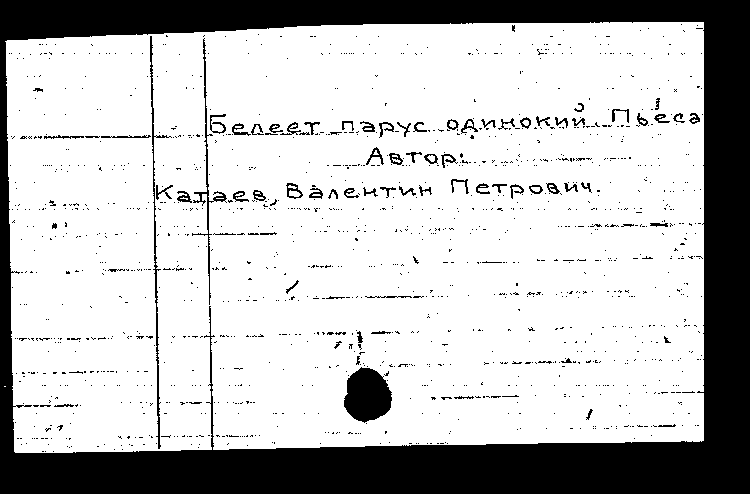 Белеет парус одинокий. Пьеса
Автор:
Катаев, Валентин Петрович.